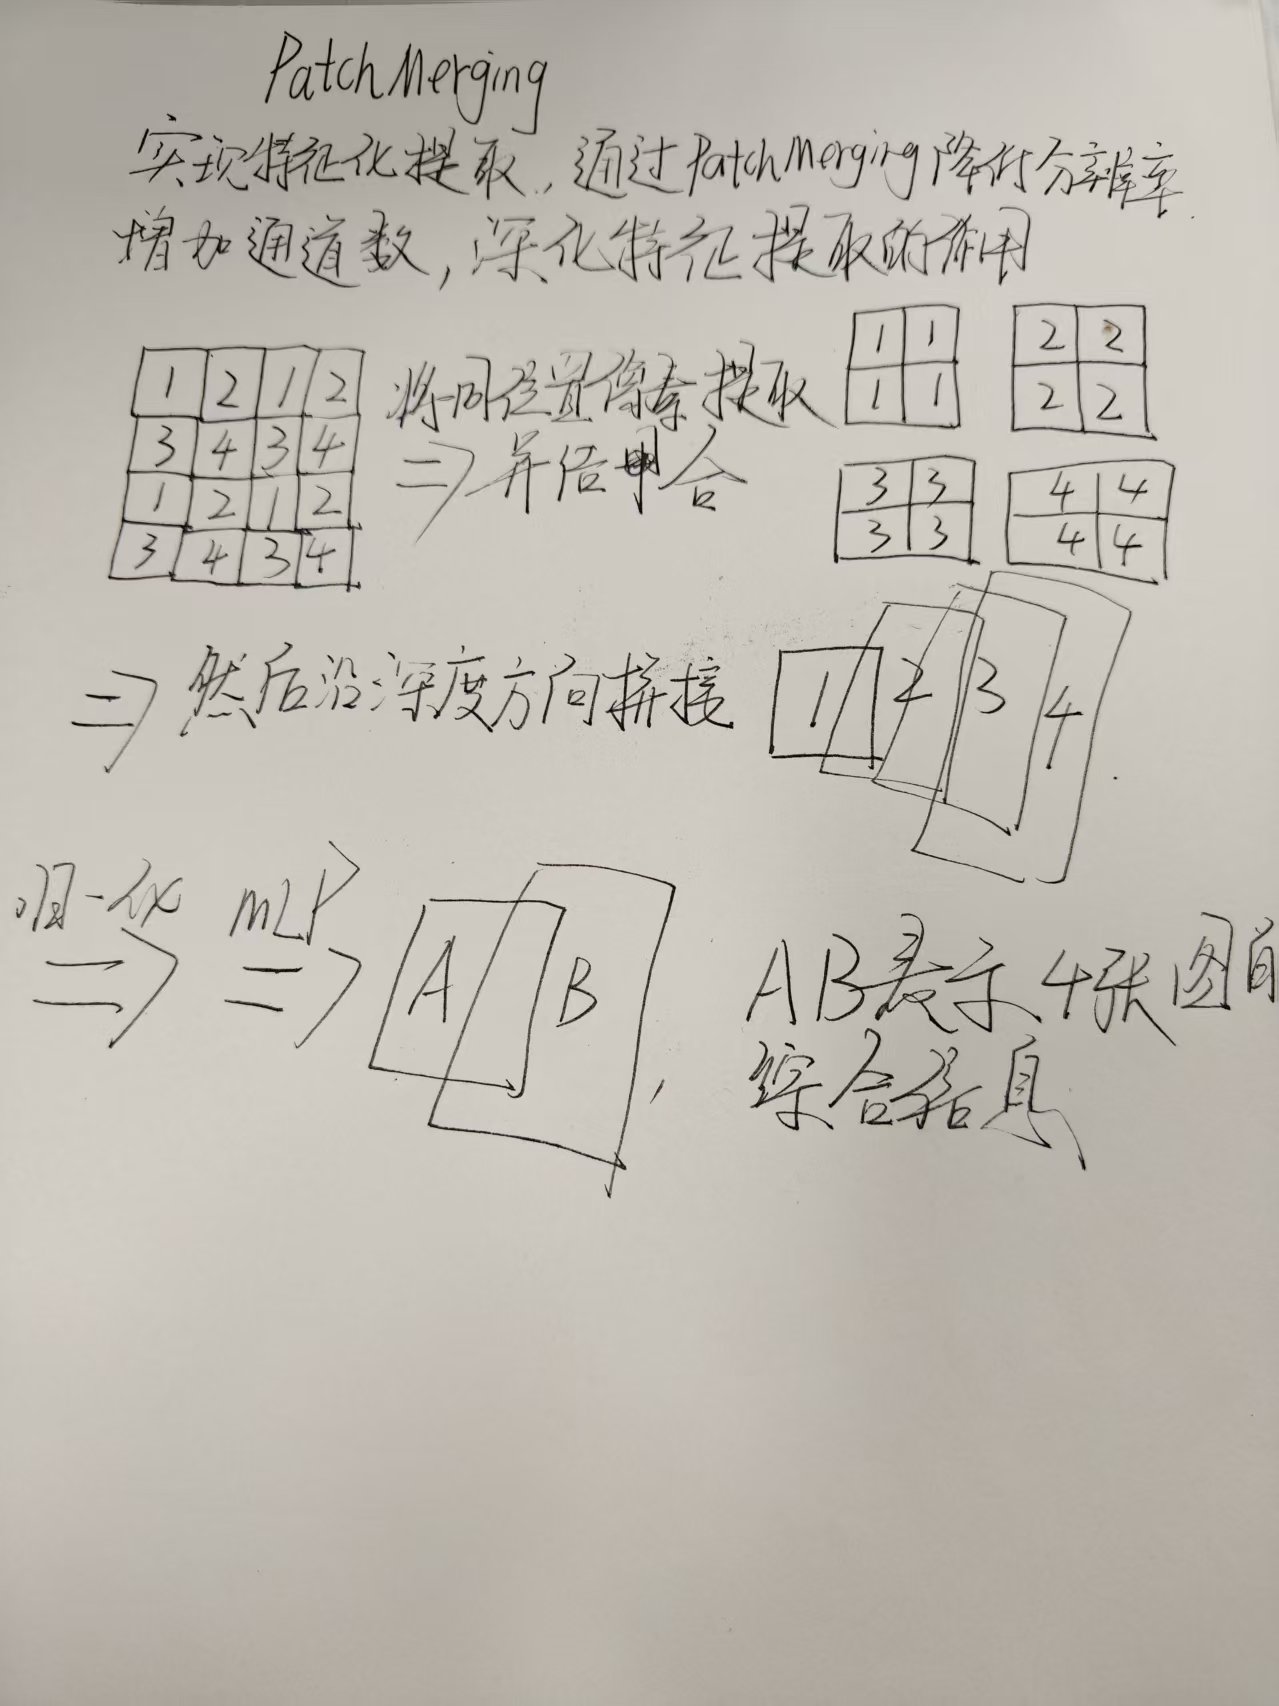 PatchMerging
实现特征化提取，通过PatchMerging降低分辨率
增加通道数，深化特征提取的作用
1 2 1 2
3 4 3 4
1 2 1 2
3 4 3 4
将同位置像素提取
⇒ 并倍 合
1 1
1 1
2 2
2 2
3 3
3 3
4 4
4 4
⇒ 然后沿深度方向拼接
1 2 3 4
归一化 MLP
⇒ ⇒ A B ，
AB表示4张图的
综合信息